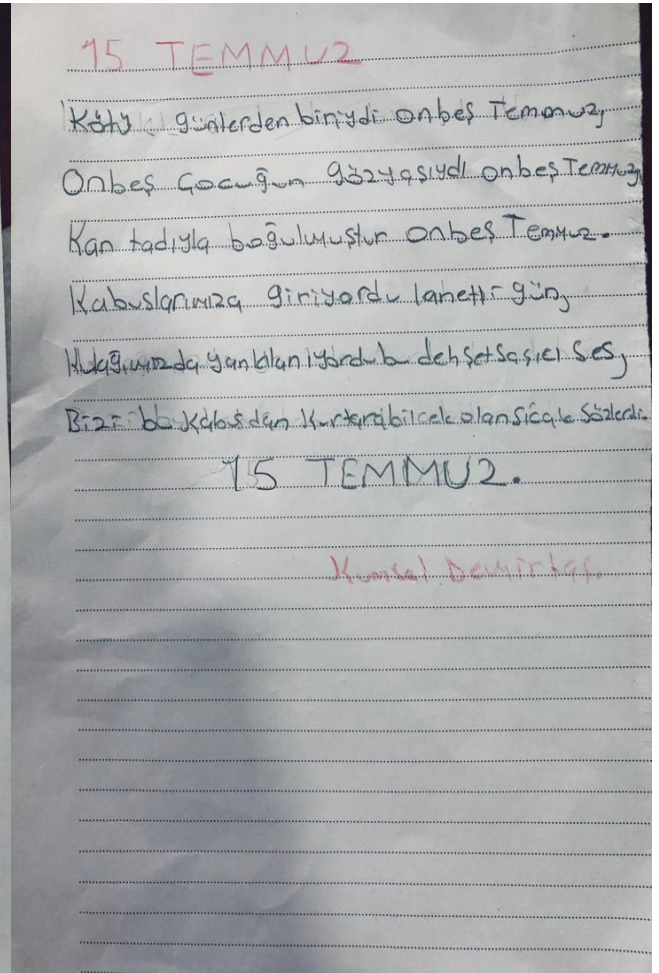 15 TEMMUZ
Kötü günlerden biriydi onbeş Temmuz,
Onbeş Çocuğun gözyaşıydı onbeş Temmuz,
Kan tadıyla boğulmuştur onbeş Temmuz.
Kabuslarımıza giriyordu lanetli gün,
Kulağımızda yankılanıyordu o dehşet saçıcı ses,
Bizi bu kabusdan kurtarabilcek olan sıcak sözlerdi.
15 TEMMUZ.
Kumsal Demirtaş.